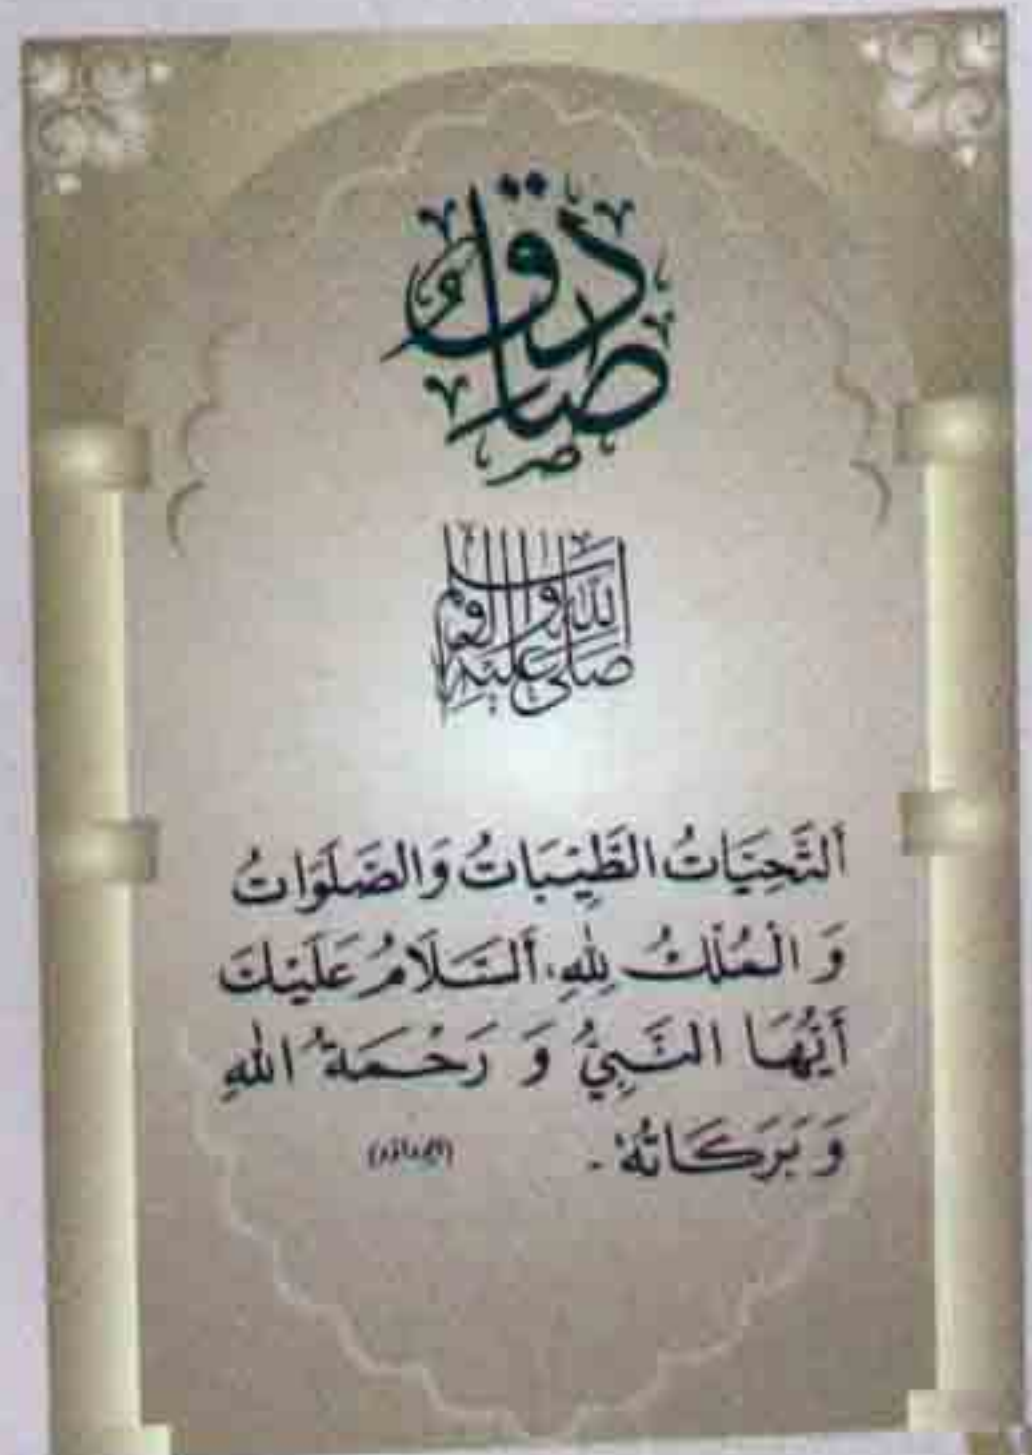 صَادِقٌ
صَلَّى اللهُ عَلَيْهِ وَآلِهِ وَسَلَّم
اَلتَّحِيَّاتُ الطَّيِّبَاتُ وَالصَّلَوَاتُ
وَ الْمُلْكُ لِلّٰهِ، اَلسَّلَامُ عَلَيْكَ
أَيُّهَا النَّبِيُّ وَ رَحْمَةُ اللهِ
وَ بَرَكَاتُهٗ - (ابوداؤد)